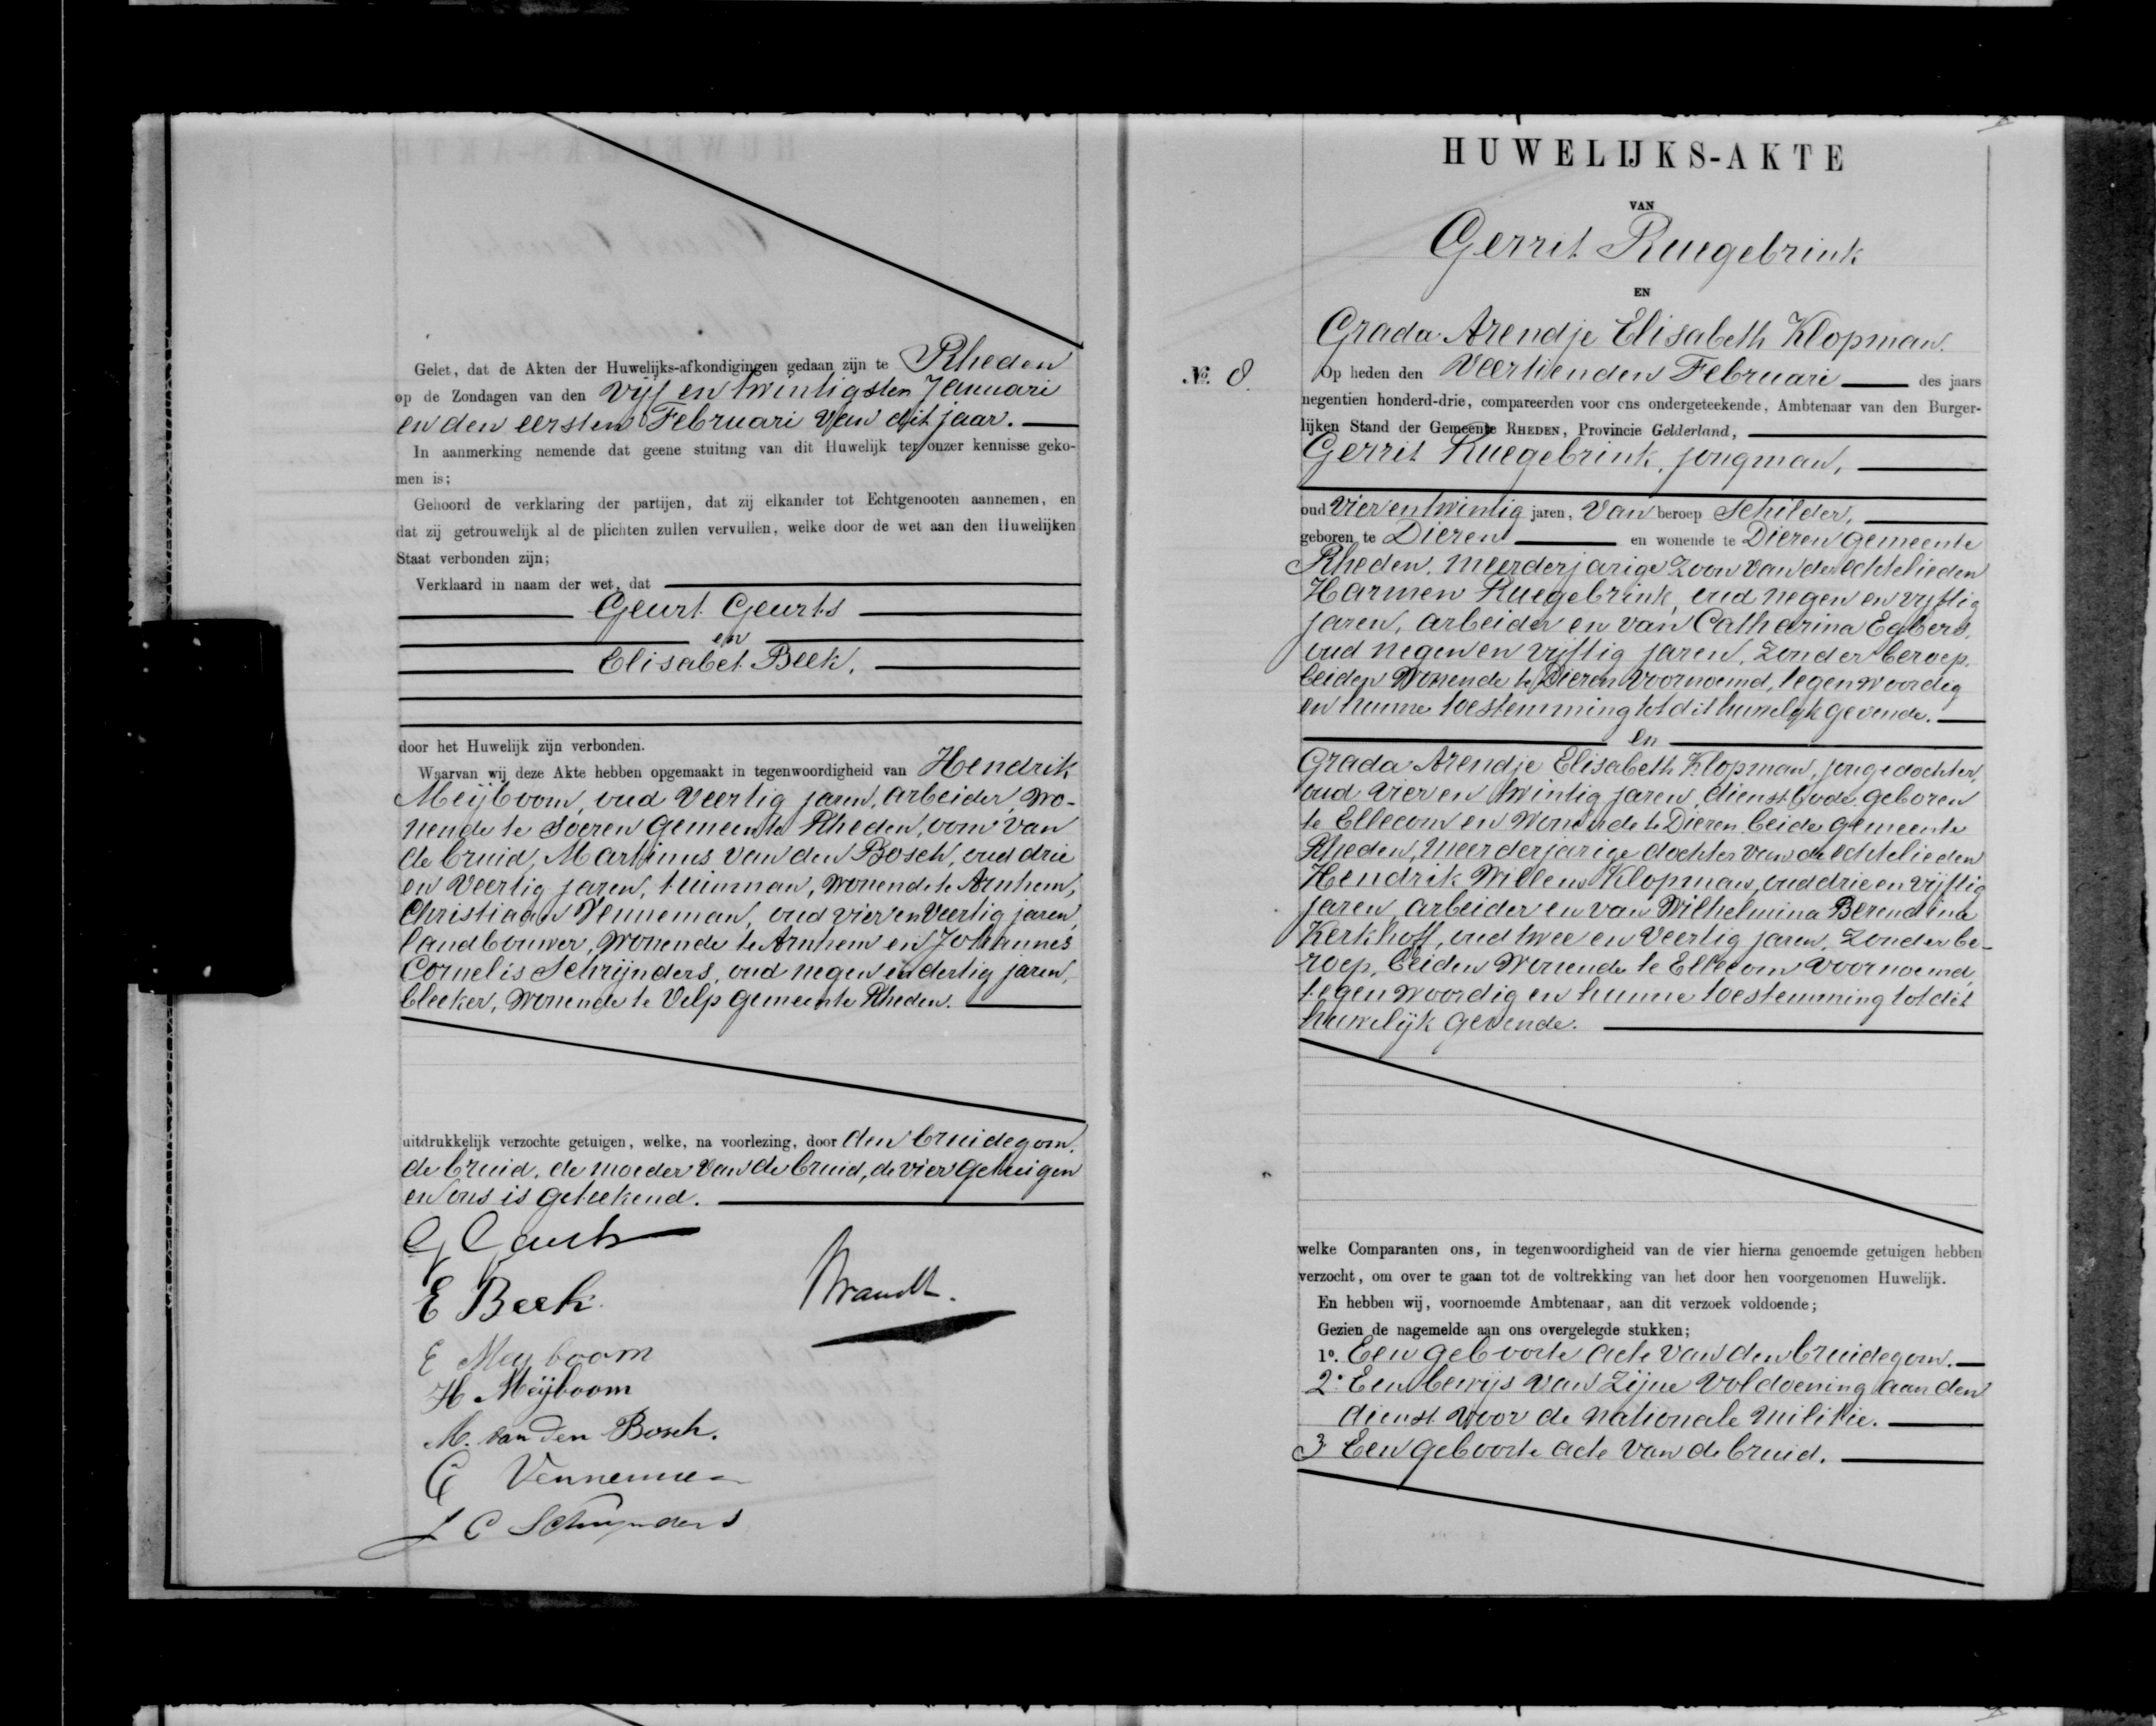 Gelet, dat de Akten der Huwelijks-afkondigingen gedaan zijn te Rheden
op de Zondagen van den vijf en twintigsten Januari
en den eersten Februari van dit jaar.
In aanmerking nemende dat geene stuiting van dit Huwelijk ter onzer kennisse geko-
men is;
Gehoord de verklaring der partijen, dat zij elkander tot Echtgenooten aannemen, en
dat zij getrouwelijk al de plichten zullen vervullen, welke door de wet aan den Huwelijken
Staat verbonden zijn;
Verklaard in naam der wet, dat
Geurt Geurts
en
Elisabet Beek.
door het Huwelijk zijn verbonden.
Waarvan wij deze Akte hebben opgemaakt in tegenwoordigheid van Hendrik
Meijboom, oud veertig jaren, arbeider, wo-
nende te Soeren gemeente Rheden, oom van
de bruid, Martinus van den Bosch, oud drie
en veertig jaren, tuinman, wonende te Arnhem,
Christiaan Venneman, oud vier en veertig jaren,
landbouwer, wonende te Arnhem en Johannes
Cornelis Schrijnders, oud negen en dertig jaren,
bleeker, wonende te Velp gemeente Rheden.
uitdrukkelijk verzochte getuigen, welke, na voorlezing, door den bruidegom,
de bruid, de moeder van de bruid, de vier getuigen
en ons is geteekend.
G Geurts
E Beek
Brandt.
E Meyboom
H Meijboom
M. van den Bosch.
C Venneman
J C Schrijnders
HUWELIJKS-AKTE
VAN
Gerrit Ruegebrink
EN
Grada Arendje Elisabeth Klopman.
No. 8.
Op heden den veertienden Februari des jaars
negentien honderd-drie, compareerden voor ons ondergeteekende, Ambtenaar van den Burger-
lijken Stand der Gemeente RHEDEN, Provincie Gelderland,
Gerrit Ruegebrink, jongman,
oud vier en twintig jaren, van beroep schilder,
geboren te Dieren en wonende te Dieren gemeente
Rheden, meerderjarige zoon van de echtelieden
Harmen Ruegebrink, oud negen en vijftig
jaren, arbeider en van Catharina Egbers,
oud negen en vijftig jaren, zonder beroep,
beiden wonende te Dieren voornoemd, tegenwoordig
en hunne toestemming tot dit huwelijk gevende.
en
Grada Arendje Elisabeth Klopman, jongedochter,
oud vier en twintig jaren, dienstbode, geboren
te Ellecom en wonende te Dieren beide gemeente
Rheden, meerderjarige dochter van de echtelieden
Hendrik Willem Klopman, oud drie en vijftig
jaren, arbeider en van Wilhelmina Berendina
Kerkhoff, oud twee en veertig jaren, zonder be-
roep, beiden wonende te Ellecom voornoemd,
tegenwoordig en hunne toestemming tot dit
huwelijk gevende.
welke Comparanten ons, in tegenwoordigheid van de vier hierna genoemde getuigen hebben
verzocht, om over te gaan tot de voltrekking van het door hen voorgenomen Huwelijk.
En hebben wij, voornoemde Ambtenaar, aan dit verzoek voldoende;
Gezien de nagemelde aan ons overgelegde stukken;
1o. Een geboorte acte van den bruidegom.
2o. Een bewijs van zijne voldoening aan den
dienst voor de nationale militie.
3 Een geboorte acte van de bruid.